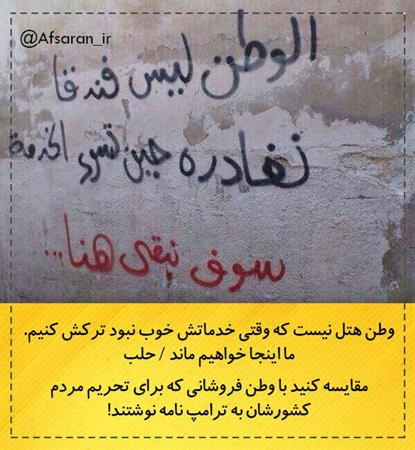 @Afsaran_ir
الوطن ليس فندقا
نغادره حين تسوء الخدمة
سوف نبقى هنا...
وطن هتل نیست که وقتی خدماتش خوب نبود ترکش کنیم.
ما اینجا خواهیم ماند / حلب
مقایسه کنید با وطن فروشانی که برای تحریم مردم
کشورشان به ترامپ نامه نوشتند!